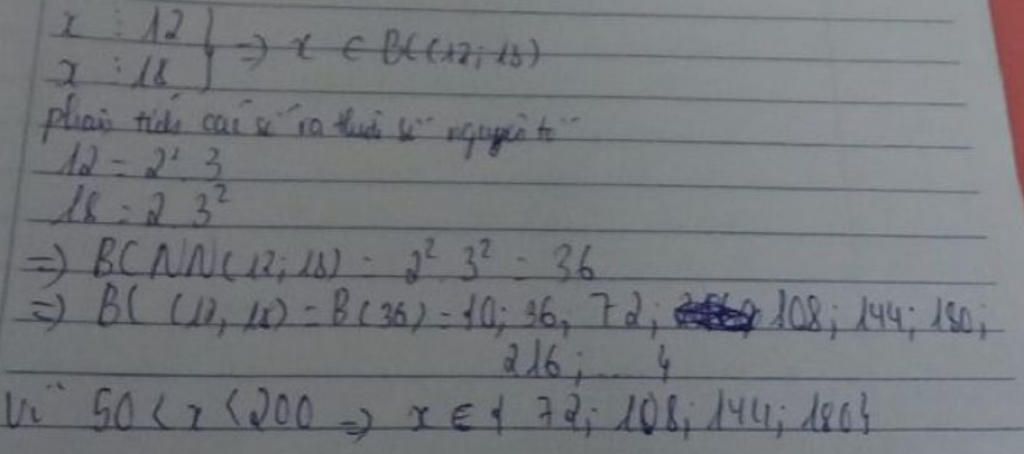 x ⋮ 12 } => x ∈ BC(12; 18)
x ⋮ 18
phân tích các số ra thừa số nguyên tố
12 = 2² 3
18 = 2 3²
=> BCNN(12; 18) = 2² 3² = 36
=> BC (12, 18) = B(36) = {0; 36, 72; 108; 144; 180;
216; ... }
Vì 50 < x < 200 => x ∈ { 72; 108; 144; 180}